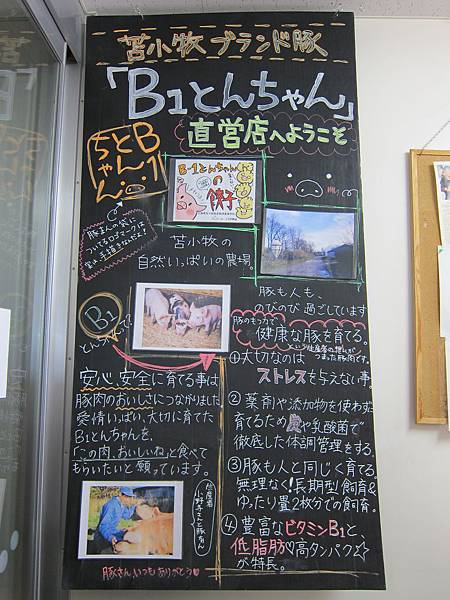 苫小牧ブランド豚
「B1とんちゃん」
直営店へようこそ
B1
とん
ちゃん
B-1とんちゃん
の
餃子
豚まんの袋に
ついてるロゴマークは
実は手描きなんだよ!
苫小牧の
自然いっぱいの農場。
豚も人も、
のびのび過ごしています
B1
とんちゃんって?
豚のもつ力で
健康な豚を育てる。
という生産者の想いが
つまった豚肉です。
①大切なのは
ストレスを与えない事。
安心、安全に育てる事は
豚肉のおいしさにつながりました。
愛情いっぱい、大切に育てた
B1とんちゃんを、
「この肉、おいしいねっ」と食べて
もらいたいと願っています。
②薬剤や添加物を使わず
育てるため炭や乳酸菌で
徹底した体調管理をする。
③豚も人と同じく育てる
無理なく!長期型飼育&
ゆったり畳2枚分での飼育。
④豊富なビタミンB1と、
低脂肪♡高タンパク☆
が特長。
生産者
小野寺さんと豚さん
豚さん、いつもありがとう♥